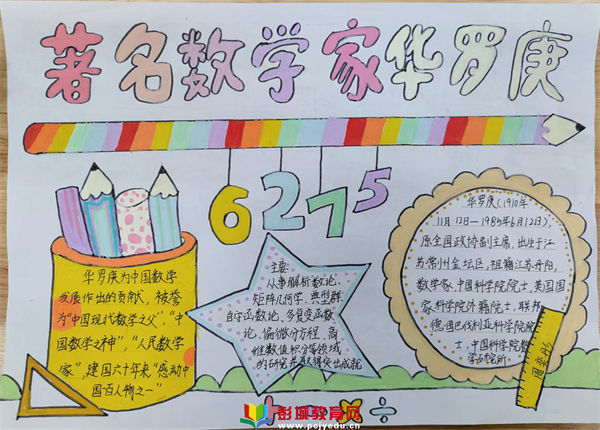 著名数学家华罗庚
6
2
7
5
华罗庚为中国数学
发展作出的贡献，被誉
为“中国现代数学之父”，“中
国数学之神”，“人民数学
家”，建国六十年来“感动中
国百人物之一”
主要
从事解析数论、
矩阵几何学、典型群、
自守函数论、多复变函数
论、偏微分方程、高
维数值积分等领域
的研究并取得突出成就
华罗庚（1910年
11月12日—1985年6月12日），
原全国政协副主席，出生于江
苏常州金坛区，祖籍江苏丹阳，
数学家，中国科学院院士，美国国
家科学院外籍院士，联邦
德国巴伐利亚科学院院
士，中国科学院数
学研究所
彭城教育网
www.pcjyedu.cn